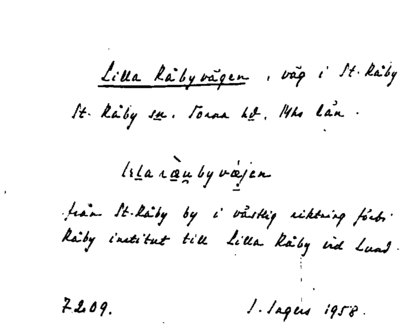 Lilla Råbyvägen, väg i St. Råby
St. Råby sn, Torna hd, Mhs län.
lɩla ràu̯by vä́jen
från St. Råby by i västlig riktning förbi
Råby institut till Lilla Råby vid Lund.
7209. I. Ingers 1958.